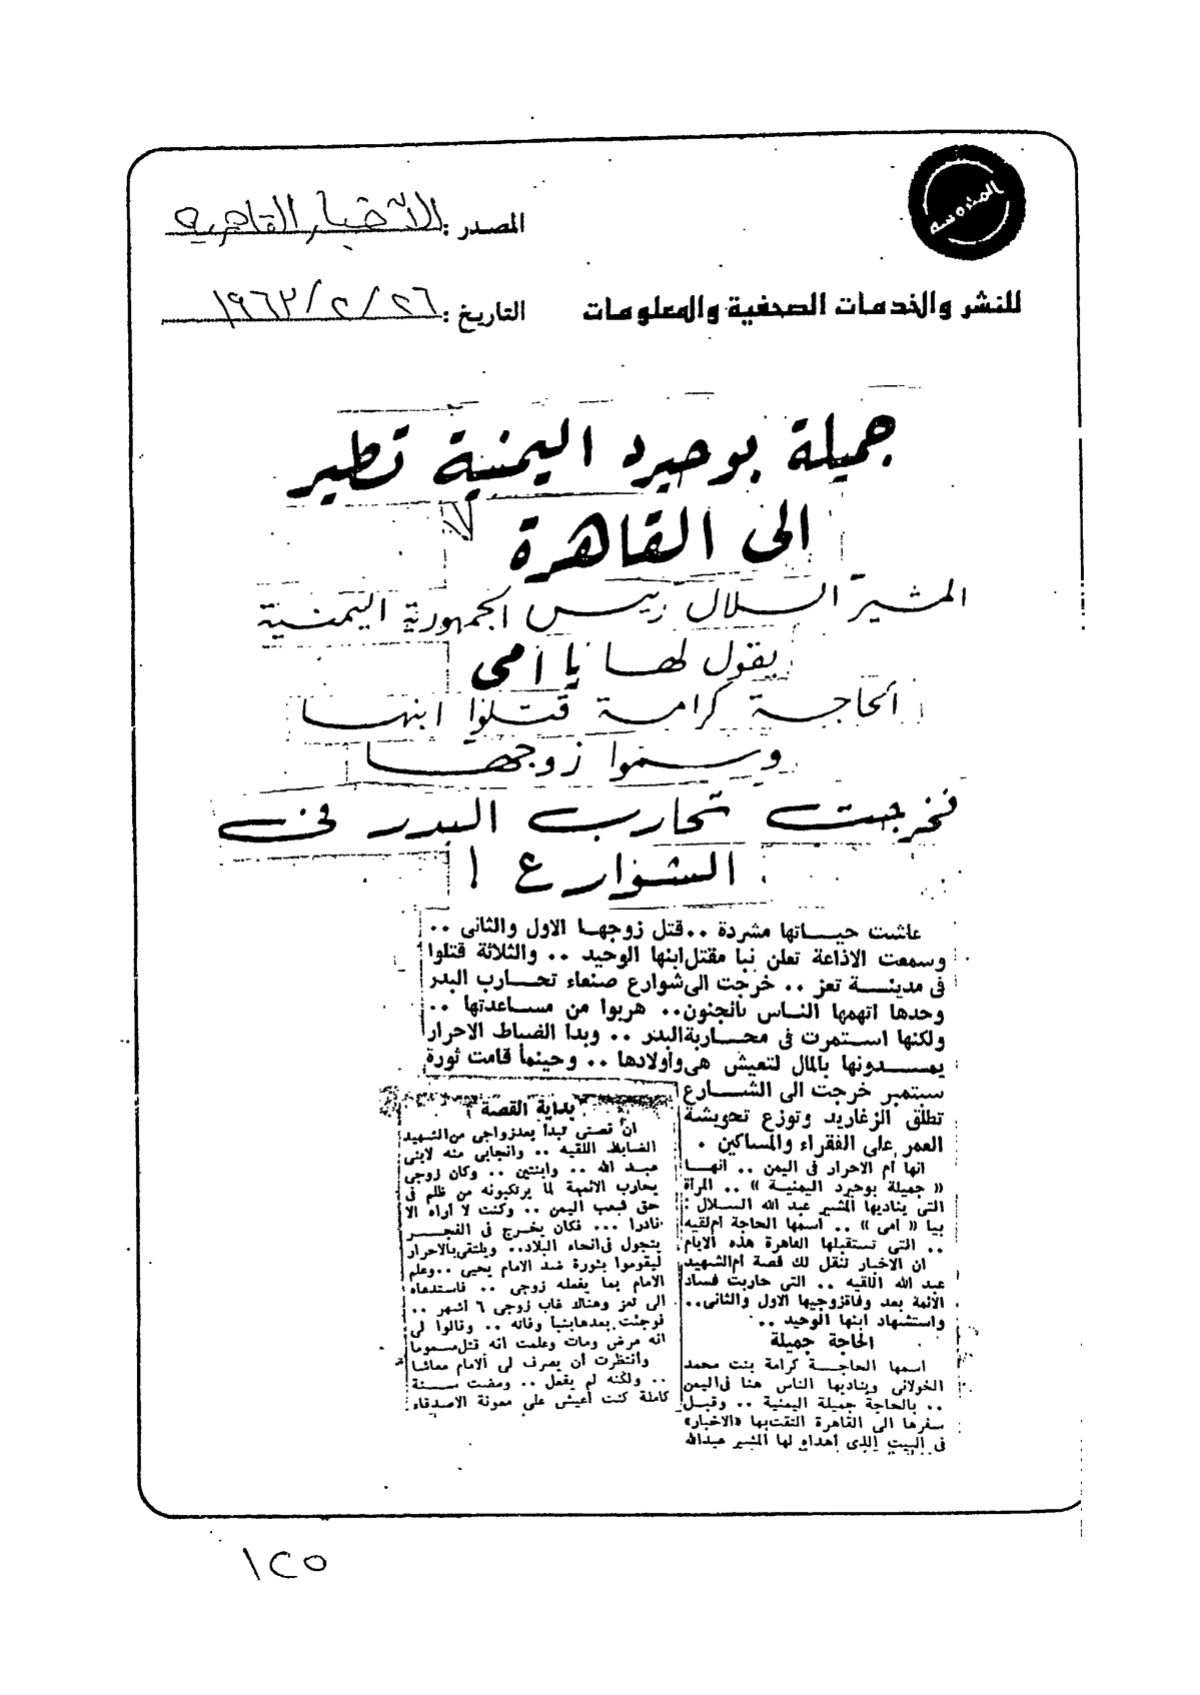 المحروسة
المصدر : الأخبار القاهرية
للنشر والخدمات الصحفية والمعلومات
التاريخ : ٢٦ / ٢ / ١٩٦٣
جميلة بوحيرد اليمنية تطير
الى القاهرة
المشير السلال رئيس الجمهورية اليمنية
يقول لها يا امى
الحاجة كرامة قتلوا ابنها
وسمموا زوجها
فخرجت تحارب البدر فى
الشوارع !
عاشت حياتها مشردة .. قتل زوجها الاول والثانى ..
وسمعت الاذاعة تعلن نبا مقتل ابنها الوحيد .. والثلاثة قتلوا
فى مدينة تعز .. خرجت الى شوارع صنعاء تحارب البدر
وحدها اتهمها الناس بالجنون .. هربوا من مساعدتها ..
ولكنها استمرت فى محاربة البدر .. وبدا الضباط الاحرار
يمدونها بالمال لتعيش هى واولادها .. وحينما قامت ثورة
سبتمبر خرجت الى الشارع
تطلق الزغاريد وتوزع تحويشة
العمر على الفقراء والمساكين .
انها أم الاحرار فى اليمن .. انها
« جميلة بوحيرد اليمنية » .. المرأة
التى يناديها المشير عبد الله السلال
بيا « امى » .. اسمها الحاجة ام لقيه
.. التى تستقبلها القاهرة هذه الايام
ان الاخبار تنقل لك قصة ام الشهيد
عبد الله اللقيه .. التى حاربت فساد
الائمة بعد وفاة زوجيها الاول والثانى ..
واستشهاد ابنها الوحيد ..
الحاجة جميلة
اسمها الحاجة كرامة بنت محمد
الخولانى ويناديها الناس هنا فى اليمن
.. بالحاجة جميلة اليمنية .. وقبل
سفرها الى القاهرة التقت بها «الاخبار»
فى البيت الذى أهداه لها المشير عبدالله
بداية القصة
ان قصتى تبدأ بعد زواجى من الشهيد
الضابط اللقيه .. وانجابى منه لابنى
عبد الله .. وابنتين .. وكان زوجى
يحارب الائمة لما يرتكبونه من ظلم فى
حق شعب اليمن .. وكنت لا اراه الا
نادرا ... فكان يخرج فى الفجر
يتجول فى انحاء البلاد .. ويلتقى بالاحرار
ليقوموا بثورة ضد الامام يحيى .. وعلم
الامام بما يفعله زوجى .. فاستدعاه
الى تعز وهناك غاب زوجى ٦ اشهر ..
فوجئت بعدها بنبا وفاته .. وقالوا لى
انه مرض ومات وعلمت أنه قتل مسموما
وانتظرت أن يصرف لى الامام معاشا
.. ولكنه لم يفعل .. ومضت سنة
كاملة كنت أعيش على معونة الاصدقاء
١٢٥